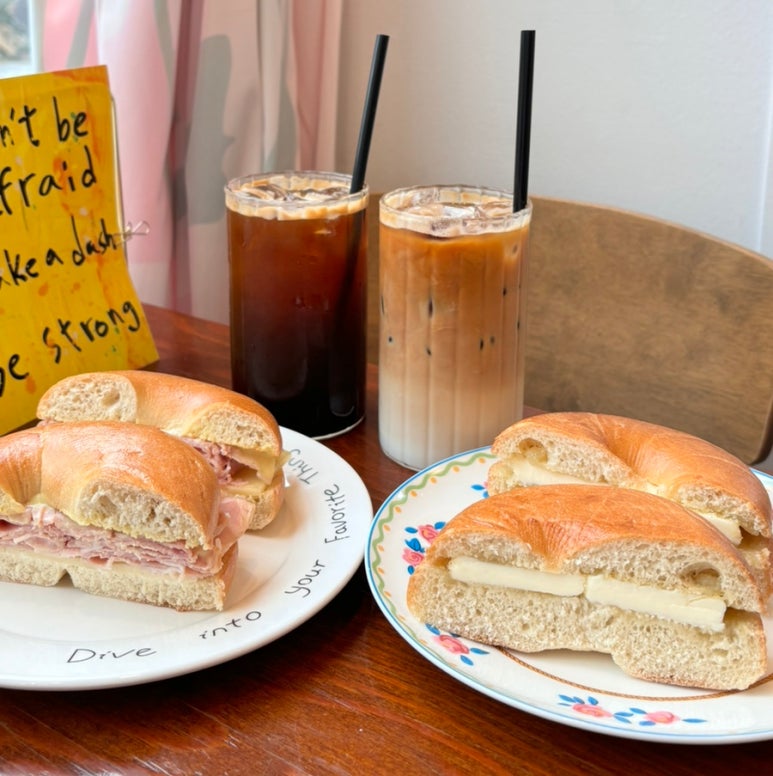 n't be
fraid
ake a dash
be strong
Dive into your Favorite Thing